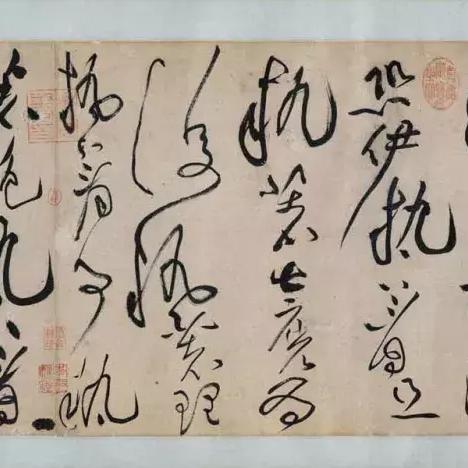 恐伊執著且
執著甚麼為
復執著理
執著事執
著色執著